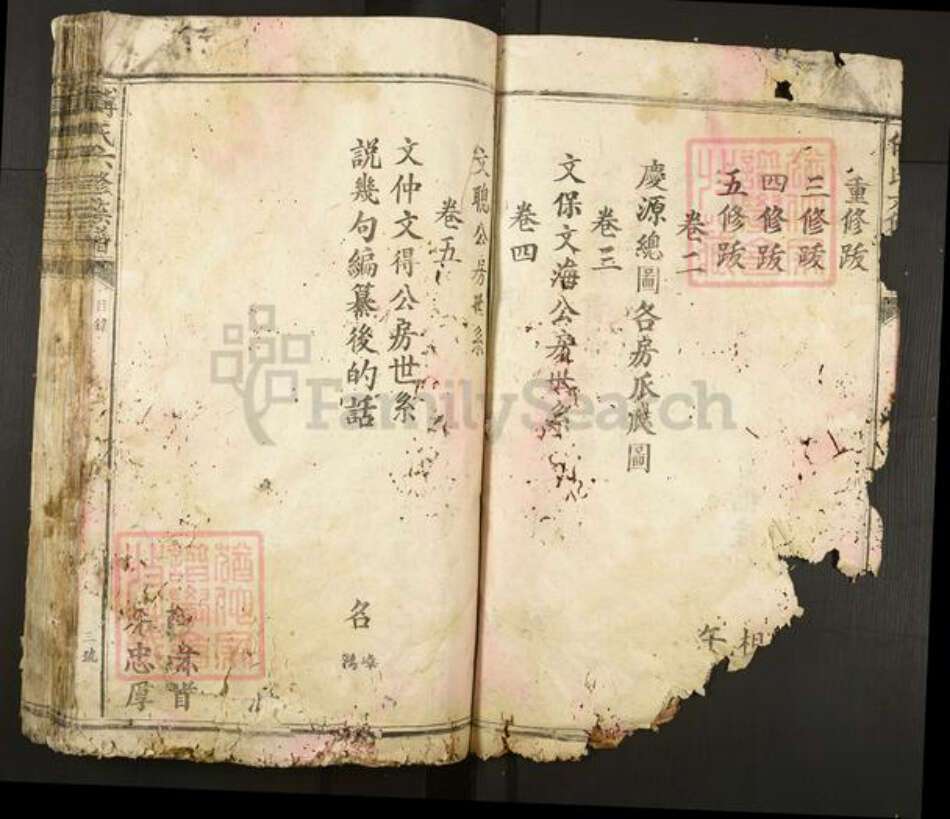 重修跋
三修跋
四修跋
五修跋
卷二
慶源總圖各房瓜瓞圖
卷三
文保文海公房世系
卷四
文聰公房世系
卷五
文仲文得公房世系
說幾句編纂後的話
名
忠厚
氏六修族譜
目錄
三號
FamilySearch